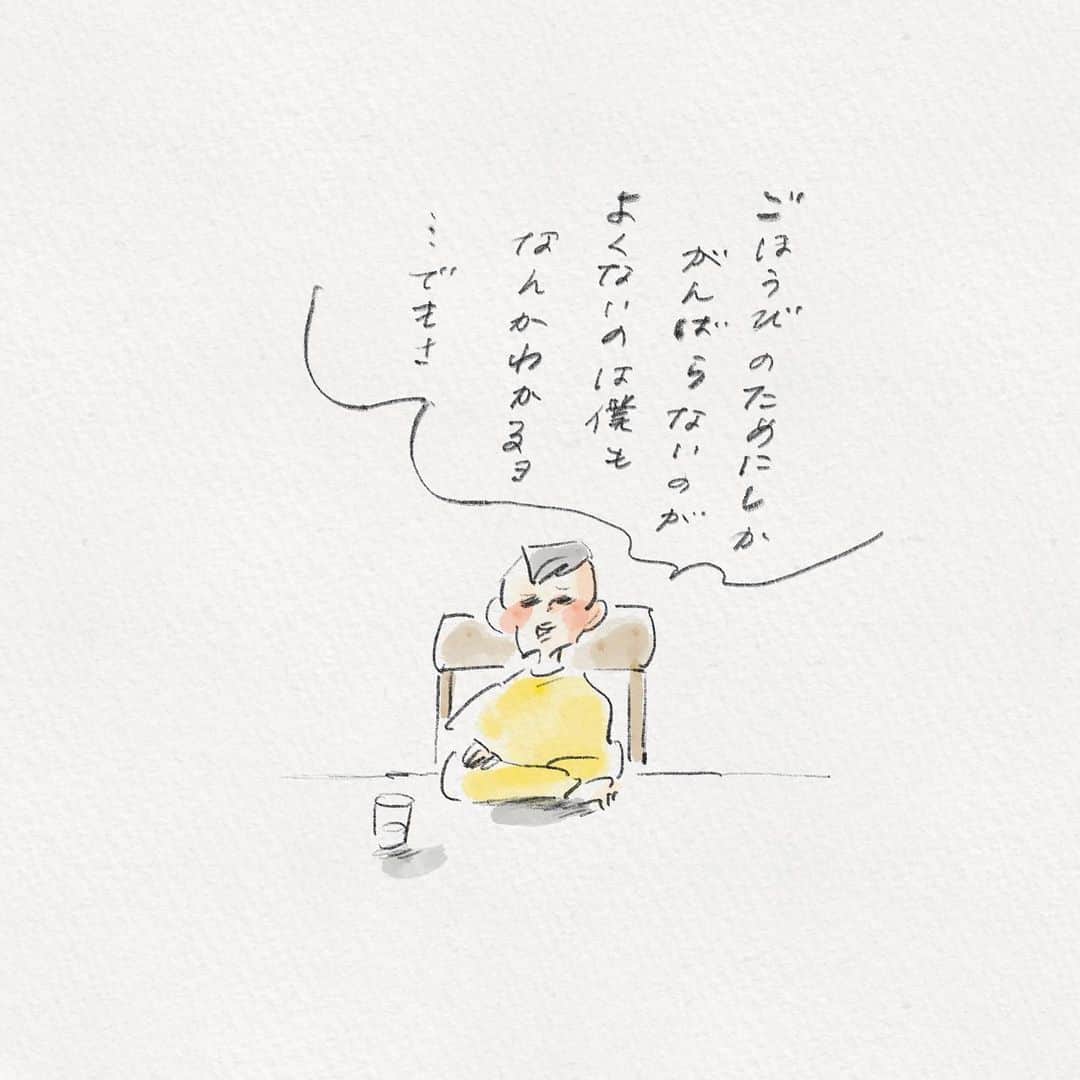 ごほうびのためにしか
がんばらないのが
よくないのは僕も
なんかわかるヨ
…でもさ